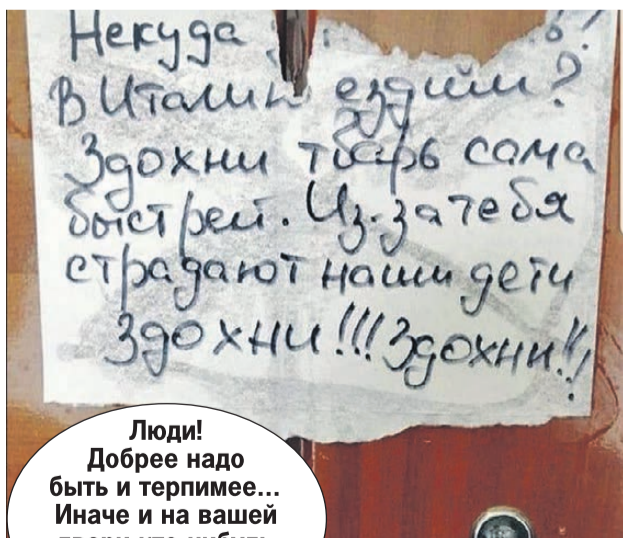 Некуда
В Италии ездили?
Здохни тварь сама
быстрей. Из-за тебя
страдают наши дети
Здохни!!! Здохни!!
Люди!
Добрее надо
быть и терпимее...
Иначе и на вашей